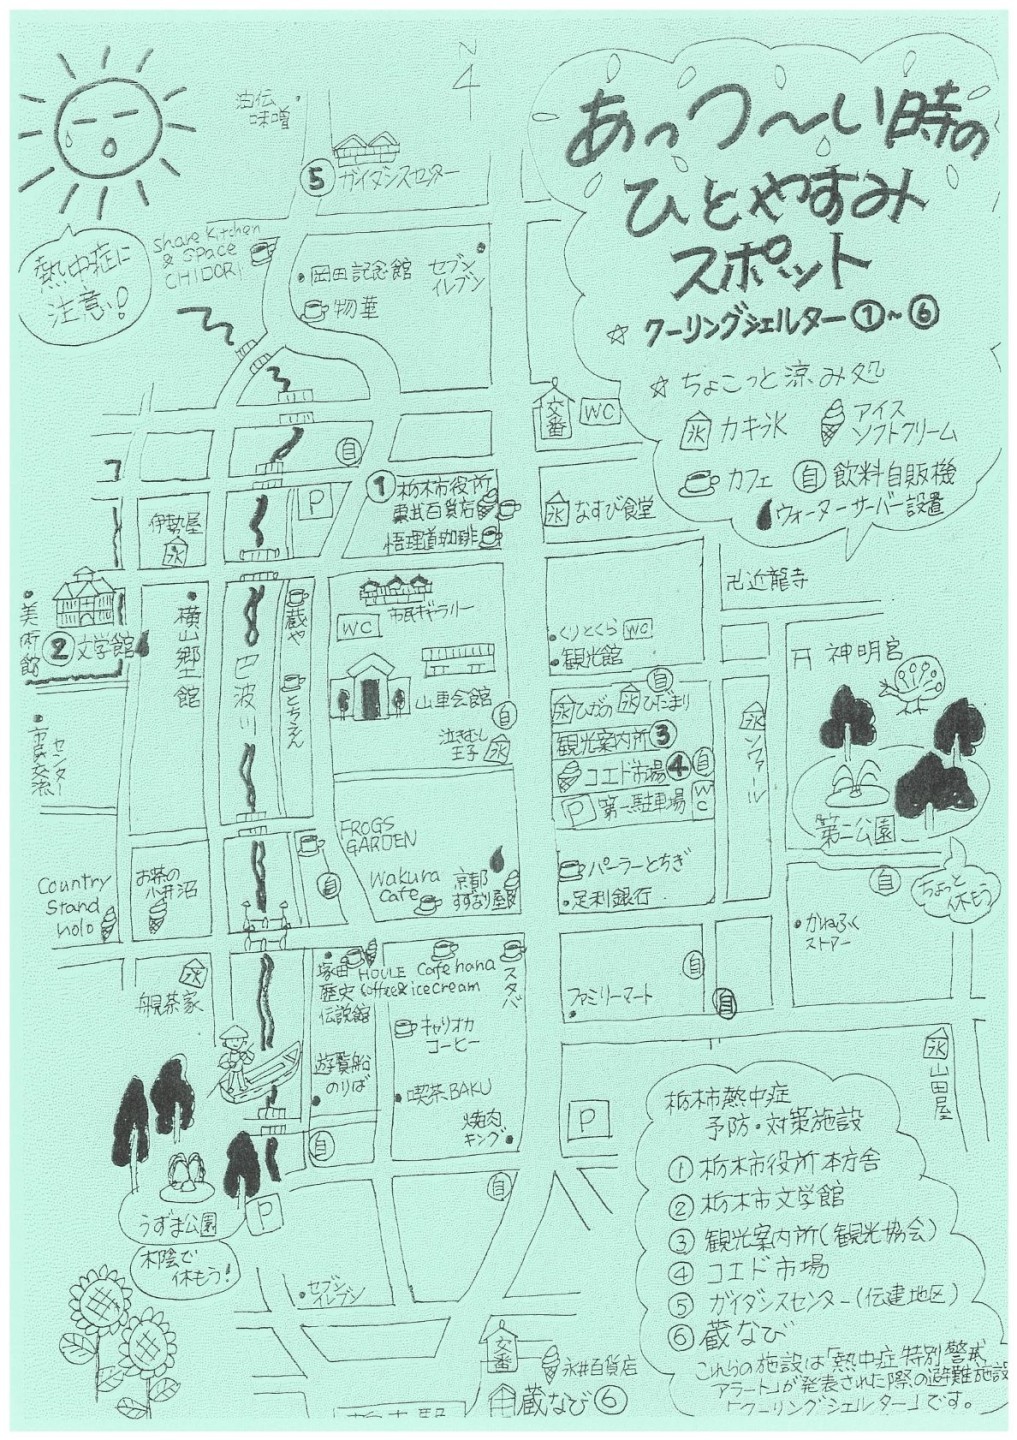 N
油伝
味噌
あっつ～い時の
ひとやすみ
スポット
☆ クーリングシェルター①～⑥
☆ ちょこっと涼み処
氷 カキ氷
アイス
ソフトクリーム
カフェ
自 飲料自販機
ウォーターサーバー設置
熱中症に
注意!
⑤ ガイダンスセンター
Share Kitchen
& Space
CHIDORI
岡田記念館
物華
セブン
イレブン
交番
WC
自
① 栃木市役所
東武百貨店
悟理道珈琲
P
氷 なすび食堂
伊勢屋
氷
卍近龍寺
美術館
② 文学館
横山郷土館
巴波川
蔵や
とちえん
市民ギャラリー
WC
山車会館
自
泣きむし
王子 氷
くりとくら WC
観光館
自
氷 ひがの 氷 ひだまり
観光案内所③
コエド市場④ 自
P 第一駐車場 WC
氷 ソワァール
神明宮
第二公園
ちょっと
休もう
自
市民交流
センター
FROGS
GARDEN
Wakura
Cafe
京都
すずなり屋
パーラーとちぎ
足利銀行
かねふく
ストアー
Country
Stand
holo
お茶の
小井沼
自
氷
舟見茶家
塚田
歴史
伝説館
HOULE
Coffee & ice cream
Cafe hana
スタバ
キャリオカ
コーヒー
自
ファミリーマート
自
遊覧船
のりば
喫茶BAKU
焼肉
キング
自
P
氷 山田屋
自
うずま公園
木陰で
休もう!
P
セブン
イレブン
交番
永井百貨店
蔵なび⑥
栃木駅
栃木市熱中症
予防・対策施設
① 栃木市役所本庁舎
② 栃木市文学館
③ 観光案内所(観光協会)
④ コエド市場
⑤ ガイダンスセンター(伝建地区)
⑥ 蔵なび
これらの施設は「熱中症特別警戒
アラート」が発表された際の避難施設
「クーリングシェルター」です。